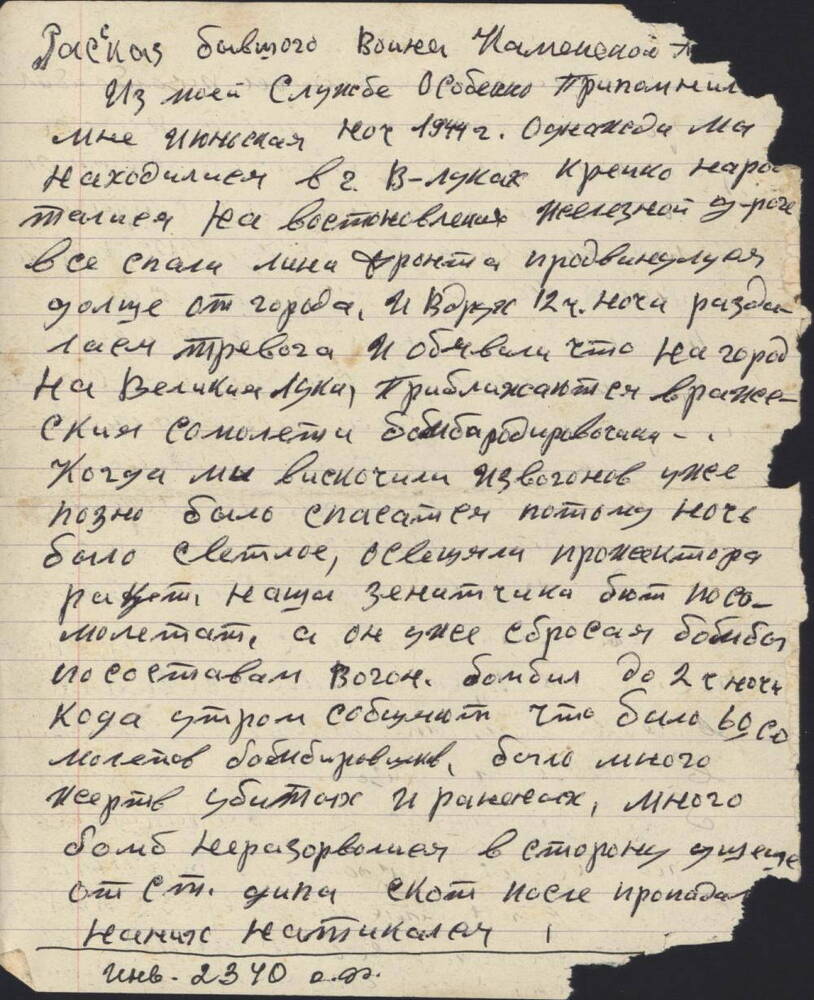 Рассказ бывшого Воина Каменской
Из моей Службе Особенно Припомнил
мне Июньская ноч 1944 г. Однажда ма
находилися в г. В-луках крепко наро
талися на востоновления железной
все спали лини фронта продвинулуся
дольще от города, И Вдрух 12 ч. ночи разда-
лаем тревога И обявили что на город
На Великия Луки, Приближаются враже-
ския сомолети бомбародировочики - .
Когда мы вискочили Извогонов уже
позно было спасатся потому ночь
было светлое, освещяли прожектора
ракет, наши зенитчики бют посо-
молетат, а он уже сбросая бомбы
посоставам Вогон. бомбил до 2 ч ночи
Кода утром собщуют что было 60 со
молетов бомбировщиков, было много
жертв убитых И раненых, много
бомб неразорволися в сторону
от ст. дипа скот после пропадал
наних натикалач
Инв. 2340 о.ф.